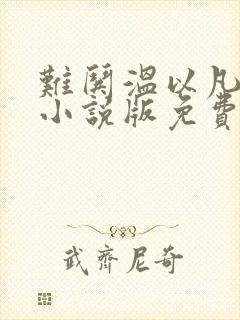 難鬨溫以凡
小說版免費
武齊尼奇